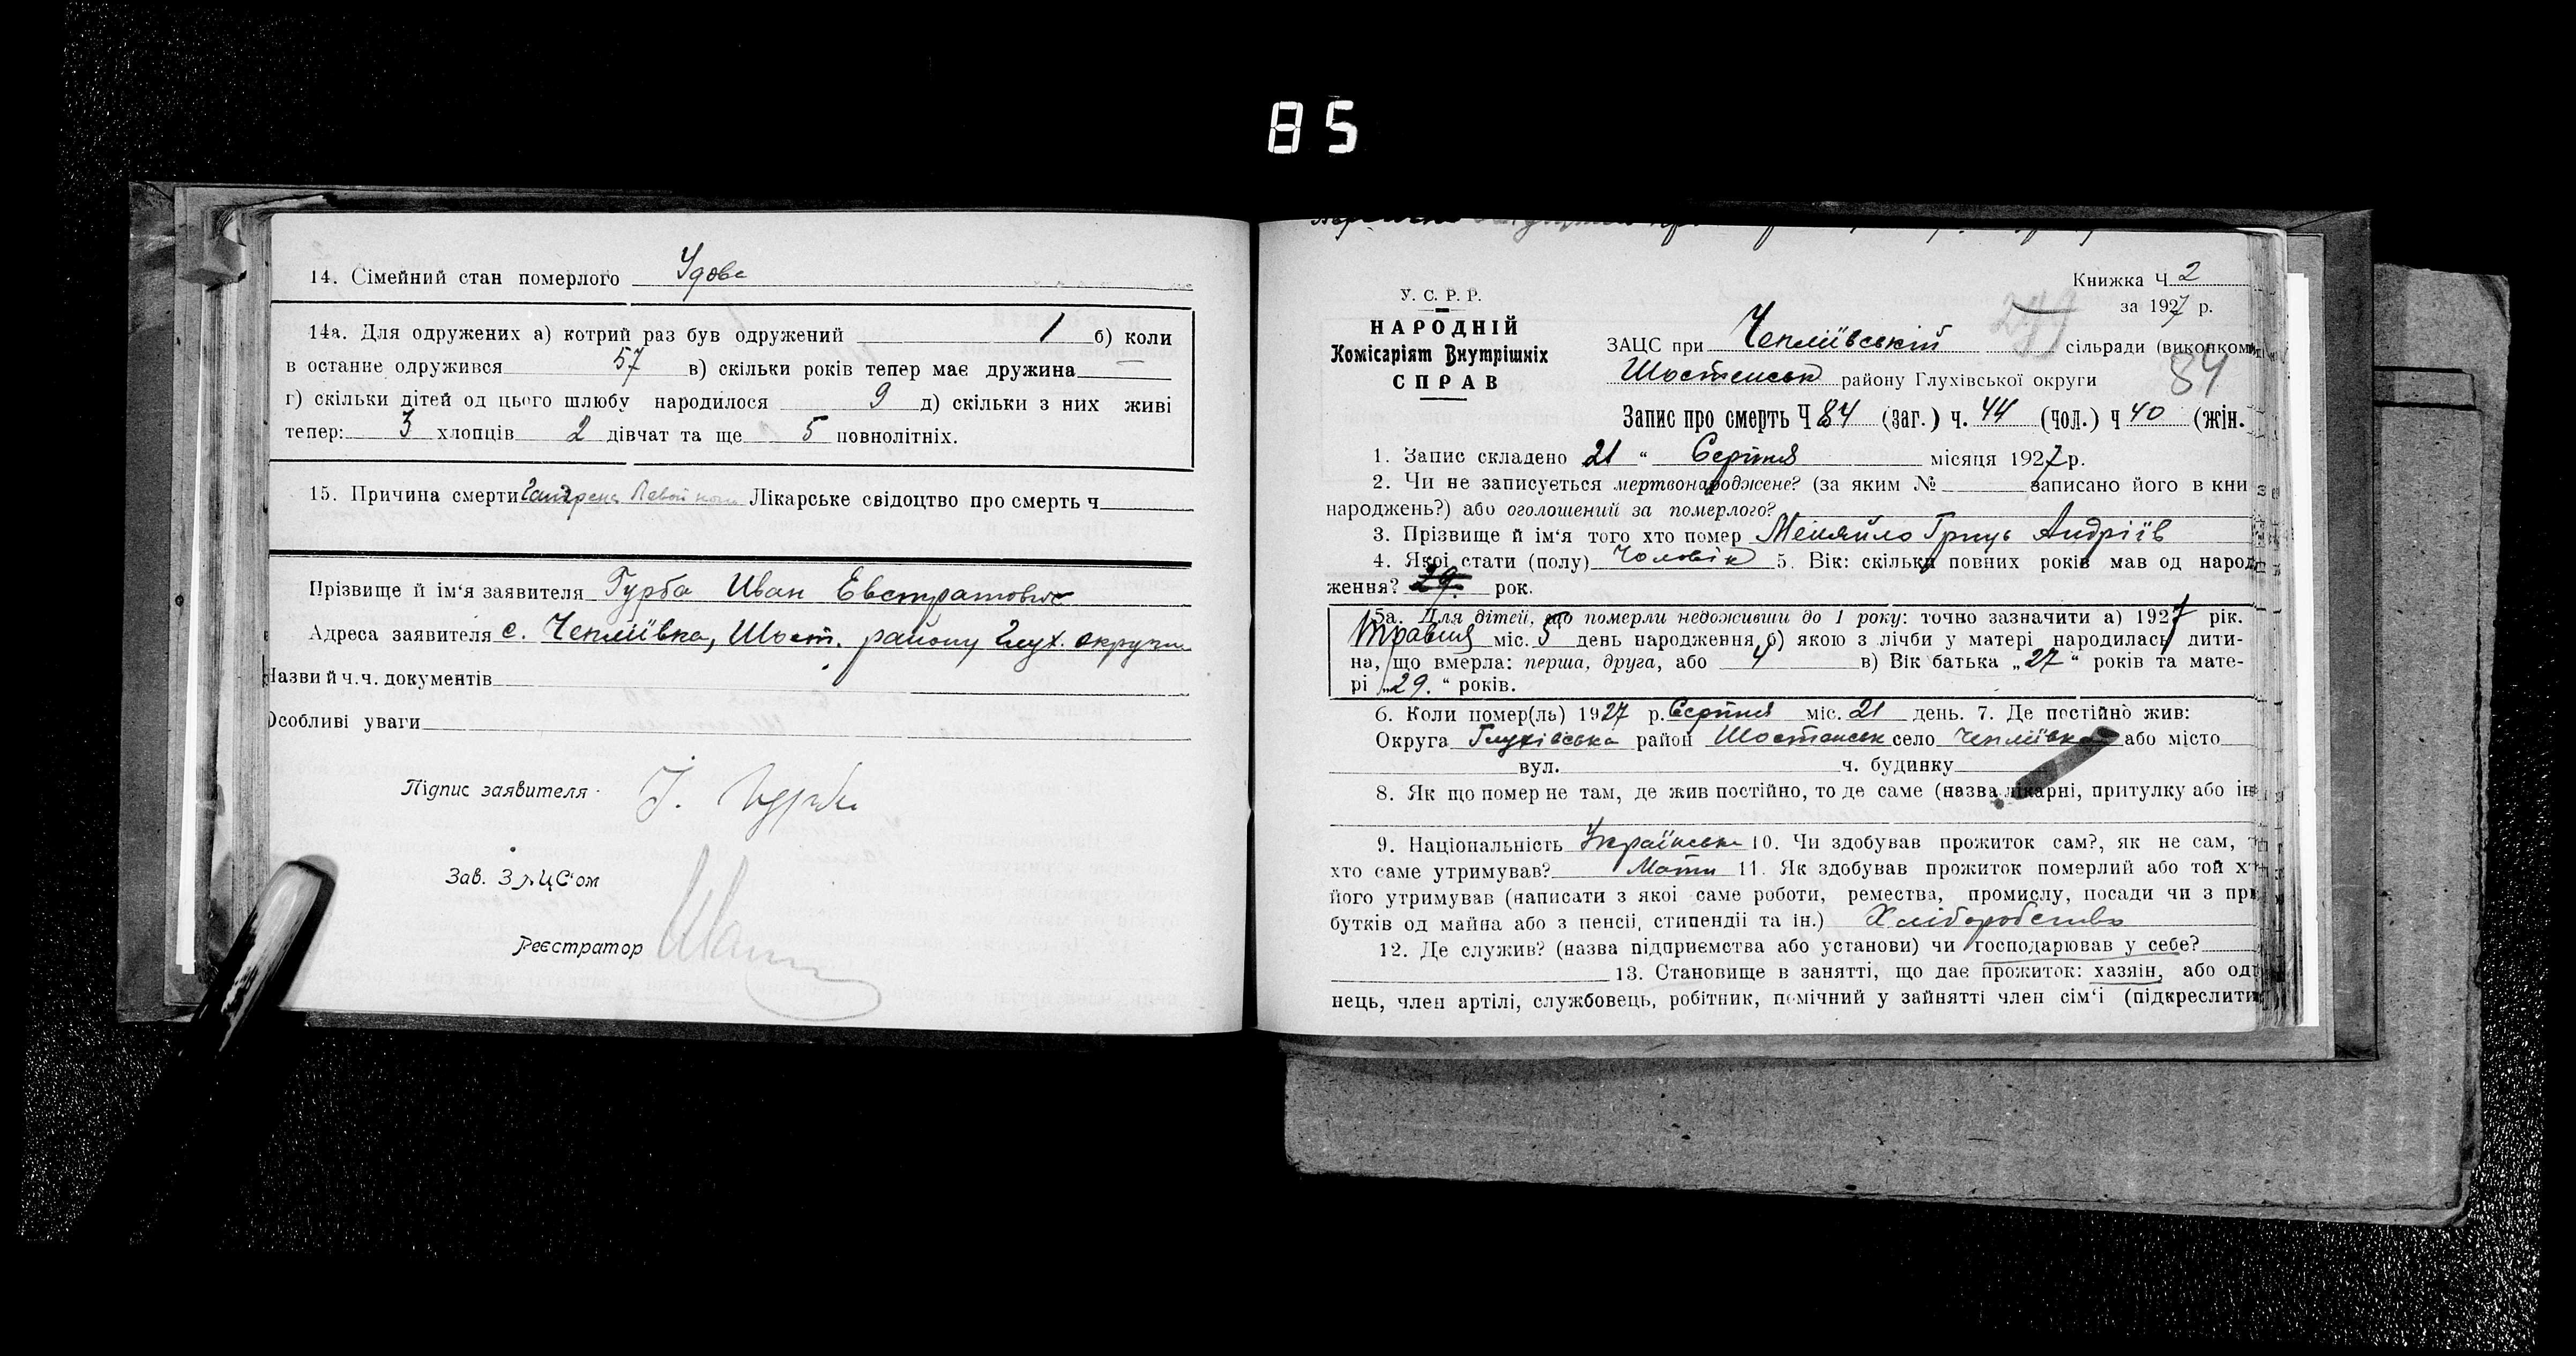 85
14. Сімейний стан померлого Удова
14а. Для одружених а) котрий раз був одружений 1 б) коли
в останнє одружився 57 в) скільки років тепер має дружина —
г) скільки дітей од цього шлюбу народилося 9 д) скільки з них живі
тепер: 3 хлопців 2 дівчат та ще 5 повнолітніх.
15. Причина смерти Гангрена Левой ноги Лікарське свідоцтво про смерть ч
Прізвище й ім'я заявителя Гурба Иван Евстратович
Адреса заявителя с. Чепліївка, Шост. району Глух. округи
Назви й ч.ч. документів
Особливі уваги
Підпис заявителя І. Гурба
Зав. ЗАЦС'ом
Реєстратор
Книжка Ч 2
за 1927 р.
У. С. Р. Р.
НАРОДНІЙ
Комісаріят Внутрішніх
СПРАВ
244
ЗАЦС при Чепліївській сільради (виконком
Шостенськ району Глухівської округи
84
Запис про смерть Ч 84 (заг.) ч. 44 (чол.) ч 40 (жін.
1. Запис складено 21 " Серпня місяця 1927 р.
2. Чи не записується мертвонароджене? (за яким № записано його в кни
народжень?) або оголошений за померлого?
3. Прізвище й ім'я того хто помер Меняйло Гриць Андріїв
4. Якої стати (полу) Чоловік 5. Вік: скільки повних років мав од народ
ження? 29. рок.
5а. Для дітей, що померли недоживши до 1 року: точно зазначити а) 1927 рік.
Травня міс. 5 день народження, б) якою з лічби у матері народилась дити-
на, що вмерла: перша, друга, або 4 в) Вік батька „27" років та мате-
рі „29." років.
6. Коли помер(ла) 1927 р. Серпня міс. 21 день. 7. Де постійно жив:
Округа Глухівська район Шостенськ село Чепліївка або місто
вул. ч. будинку
8. Як що помер не там, де жив постійно, то де саме (назва лікарні, притулку або ін
9. Національність Українська 10. Чи здобував прожиток сам?, як не сам,
хто саме утримував? Мати 11. Як здобував прожиток померлий або той х
його утримував (написати з якої саме роботи, ремества, промислу, посади чи з при
бутків од майна або з пенсії, стипендії та ін.) Хліборобство
12. Де служив? (назва підприємства або установи) чи господарював у себе?
13. Становище в занятті, що дає прожиток: хазяїн, або оди
нець, член артілі, службовець, робітник, помічний у зайнятті член сім'ї (підкреслити